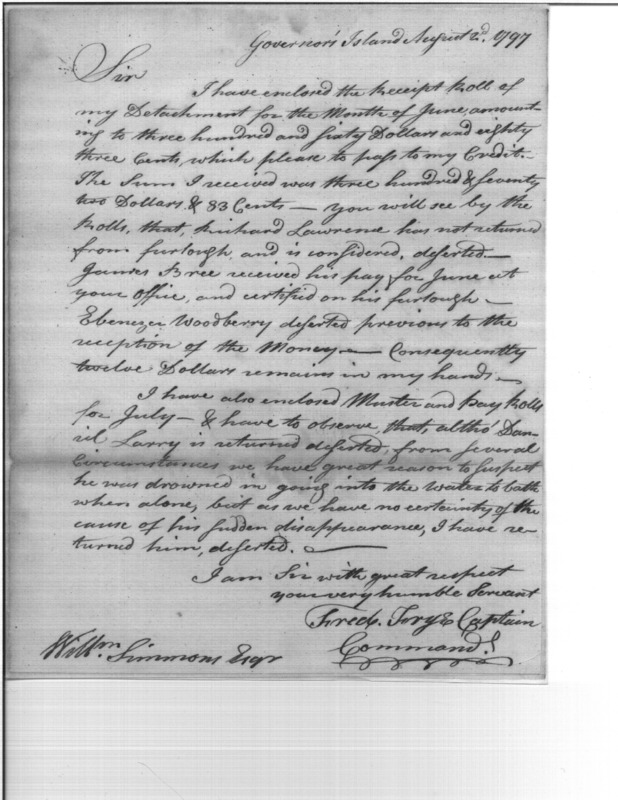 Governor's Island August 2d. 1797
Sir
I have enclosed the Receipt Roll of
my Detachment for the Month of June, amount-
ing to three hundred and sixty Dollars and eighty
three Cents, which please to pass to my Credit.-
The Sum I received was three hundred & seventy
two Dollars & 83 Cents — you will see by the
Rolls, that, Richard Lawrence has not returned
from furlough, and is considered, deserted.—
James Bree received his pay for June at
your Office, and certified on his furlough —
Ebenezer Woodberry deserted previous to the
reception of the Money — Consequently
twelve Dollars remains in my hands.—
I have also enclosed Muster and Pay Rolls
for July — & have to observe, that, altho' Dan-
iel Larry is returned deserted, from several
Circumstances we have great reason to suspect
he was drowned in going into the Water to bathe
when alone, but as we have no certainty of the
cause of his sudden disappearance, I have re-
turned him, deserted. —
I am Sir with great respect
your very humble Servant
Fredk. Frye Captain
Command.g
Willm. Simmons Esqr